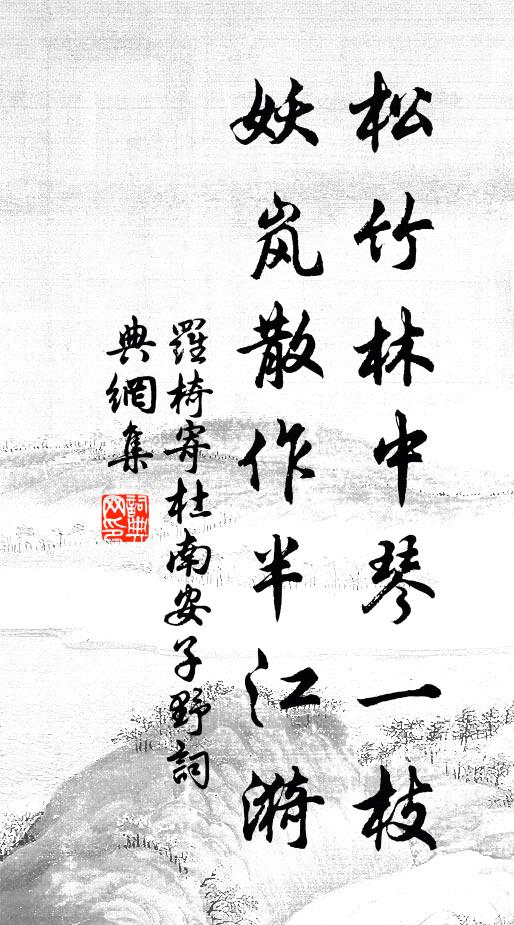 松竹林中琴一枝
妖岚散作半江漪
羅椅寄杜南安子野詞
典網集
詞典網印